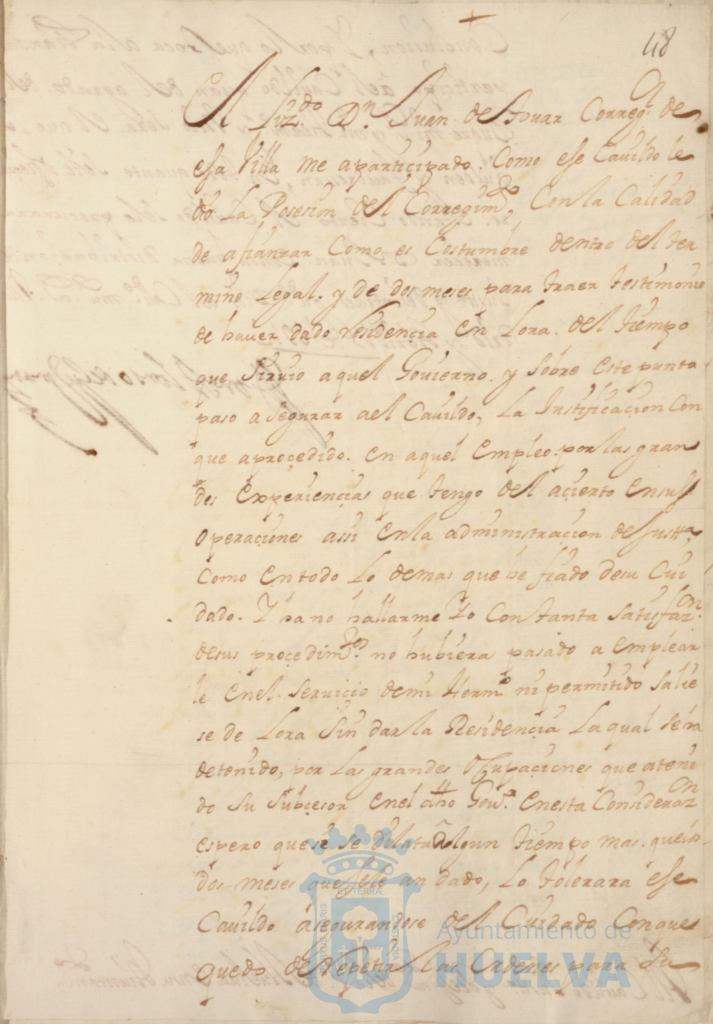 ✝
48
El Liz.do Dn Juan de Tovar Correg.or de
essa Villa me aparticipado. Como ese Cavildo le
dio La Posesion del Corregim.to, Con la Calidad
de afianzar Como es Costumbre dentro del ter
mino Legal. y de dos meses para traer testimonio
de haver dado residençia en Lora. del tiempo
que sirvio aquel Govierno. y sobre este punto
paso a segurar a el Cavildo, La Justificaçion Con
que aproçedido. en aquel empleo. por las gran
des experiençias que tengo del açierto en sus
operaçiones assi en la administracion de Justt.a
Como en todo Lo demas que he fiado de su Cui
dado. Y ha no hallarme Yo Con tanta satisfaz.on
de sus proçedim.tos no hubiera pasado a emplear
le en el serviçio de mi Herm.o ni permitido salie
se de Lora sin dar la Residençia La qual se ira
detenido, por Las grandes Ocupaçiones que atení
do su subçesor en el dho Gov.no en esta Consideraz.on
espero que se se dilatará algun tiempo mas. que los
dos meses que se le an dado, Lo tolerara ese
Cavildo asegurandose del Cuidado Con que
quedo de Repetir Las Ordenes para su
Ayuntamiento de
HUELVA